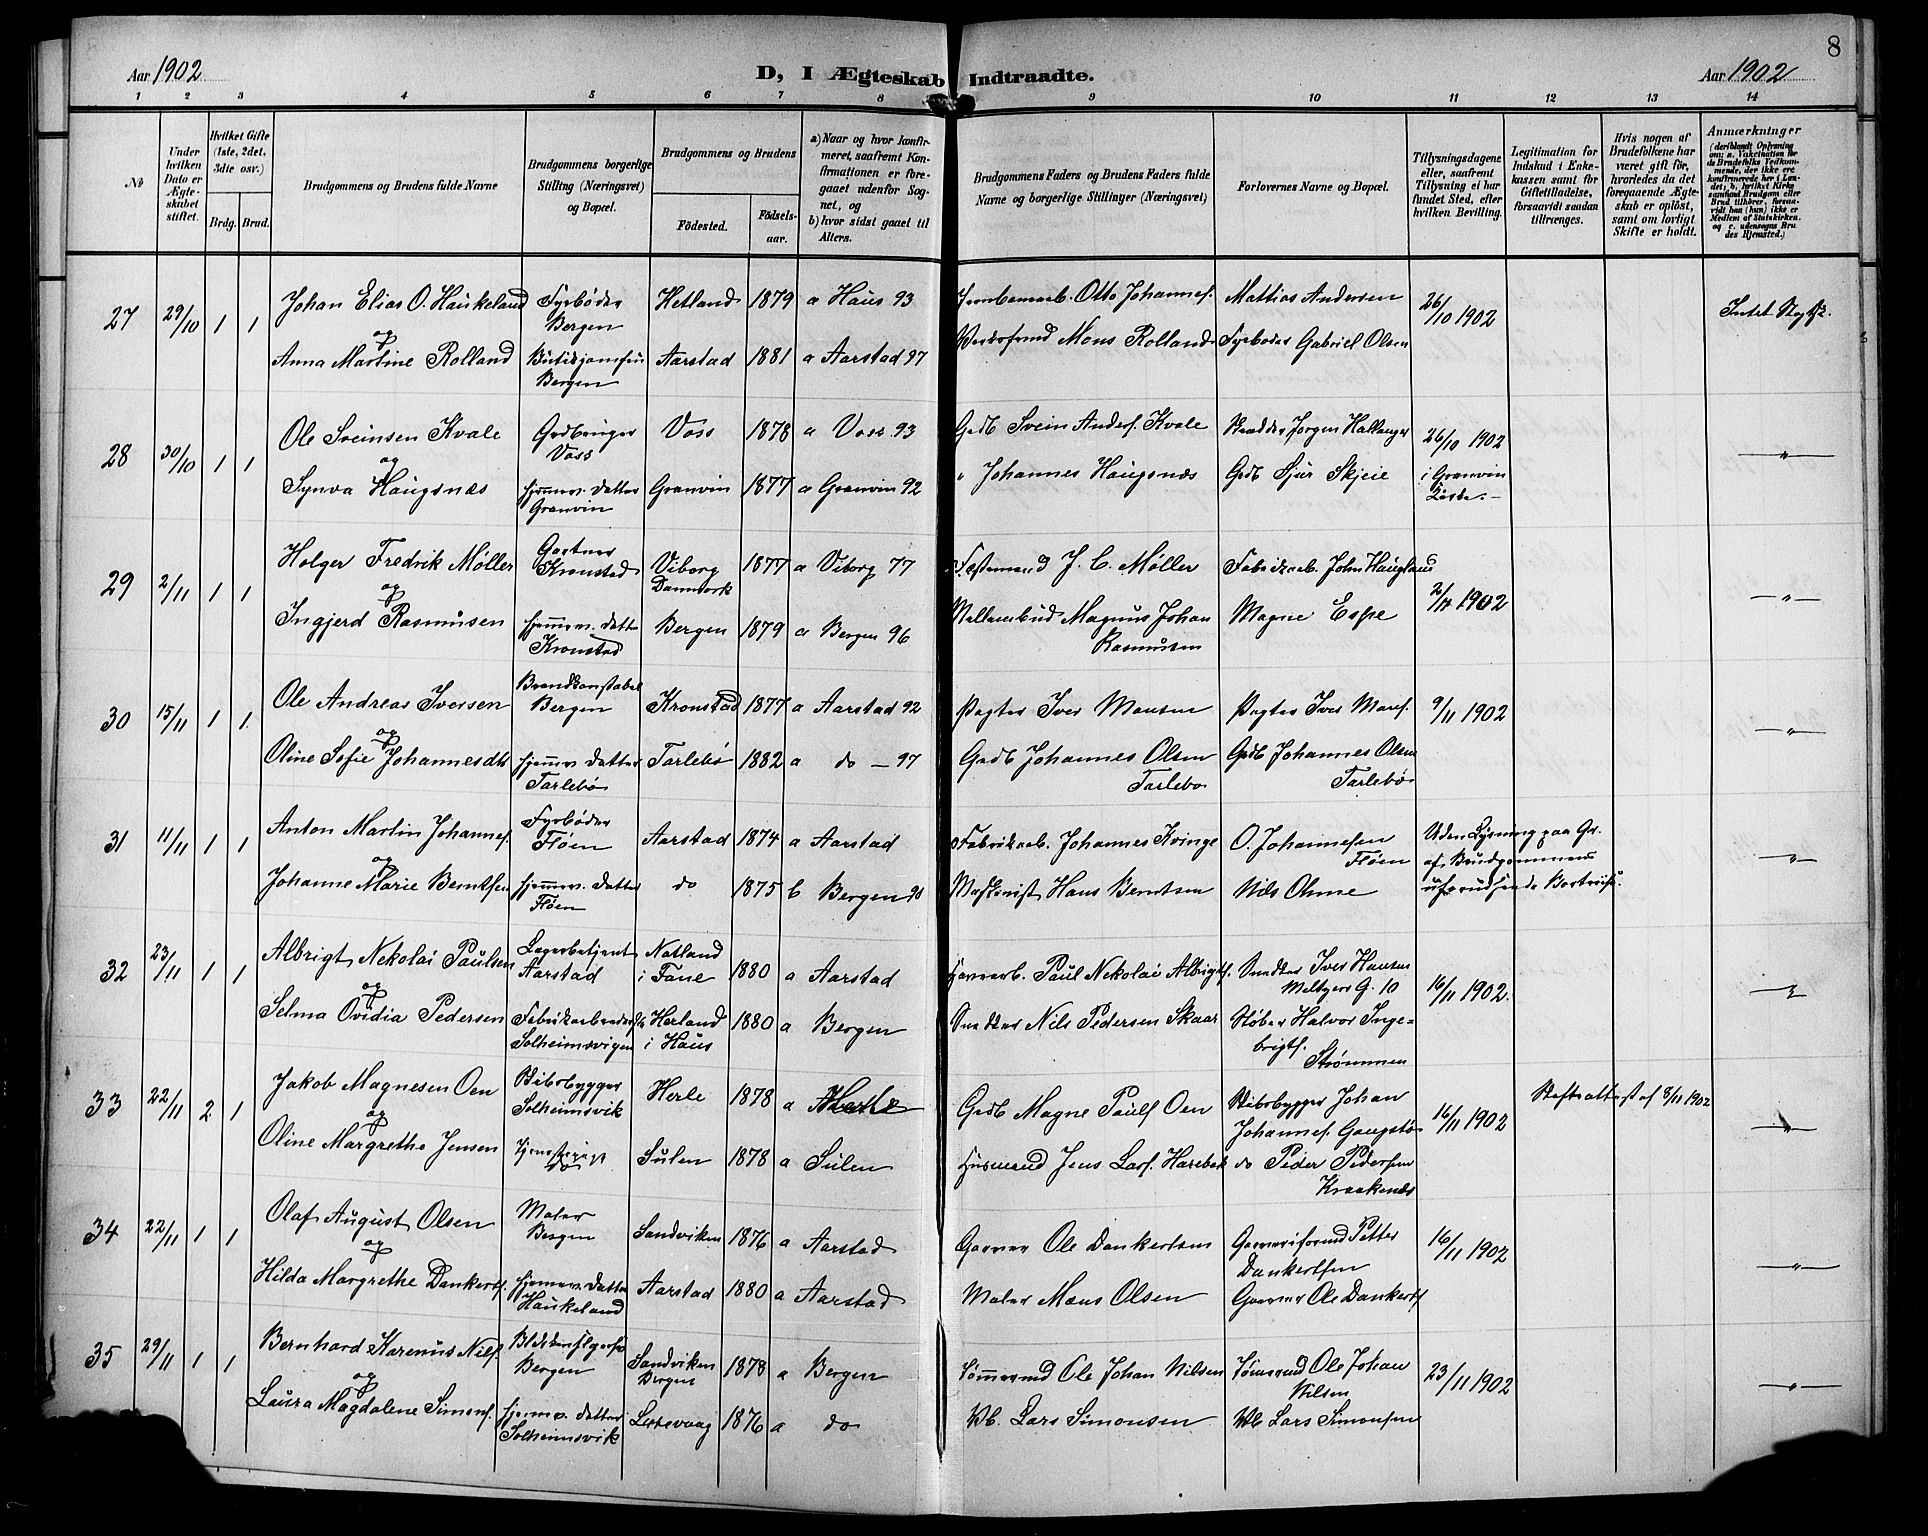 8
Aar 1902
D, I Ægteskab Indtraadte.
Aar 1902
1 2 3 4 5 6 7 8 9 10 11 12 13 14
№
Under hvilken Dato er Ægteskabet stiftet.
Hvilket Gifte (1ste, 2det, 3dte osv.)
Brdg. Brud.
Brudgommens og Brudens fulde Navne
Brudgommens borgerlige Stilling (Næringsvei) og Bopæl.
Brudgommens og Brudens
Fødested. Fødselsaar.
a) Naar og hvor konfirmeret, saafremt Konfirmationen er foregaaet udenfor Sognet, og
b) hvor sidst gaaet til Alters.
Brudgommens Faders og Brudens Faders fulde Navne og borgerlige Stillinger (Næringsvei)
Forlovernes Navne og Bopæl.
Tillysningsdagene eller, saafremt Tillysning ei har fundet Sted, efter hvilken Bevilling.
Legitimation for Indskud i Enkekassen samt for Giftetilladelse, forsaavidt saadan tiltrænges.
Hvis nogen af Brudefolkene har været gift før, hvorledes da det foregaaende Ægteskab er opløst, samt om lovligt Skifte er holdt.
Anmærkninger (deriblandt Oplysning om: a. Vakcination for de Brudefolks Vedkommende, der ikke ere konfirmerede her i Landet; b. hvilket Kirkesamfund Brudgom eller Brud tilhører, forsaavidt han (hun) ikke er Medlem af Statskirken, og c. udensogns Brudes Hjemsted.)
27 29/10 1 1 Johan Elias O. Haukeland Fyrbøder Bergen Hetland 1879 a Haus 93 Otto Johannes. Mattias Andersen 26/10 1902
og
Anna Martine Rolland Bergen Aarstad 1881 a Aarstad 97 Mons Rolland Fyrbøder Gabriel Olsen
28 30/10 1 1 Ole Sveinsen Kvale Grdbruger Voss Voss 1878 a Voss 93 Grdb Svein Anders. Kvale Skrædder Jørgen Hallanger 26/10 1902 "
og
Synva Haugsnæs hjemmv. datter Granvin Granvin 1877 a Granvin 92 " Johannes Haugsnæs Grdb Sjur Skjeie i Granvin Kirke. -
29 2/11 1 1 Holger Fredrik Møller Gartner Kronstad Viborg Danmark 1877 a Viborg 77 J. C. Møller Fabrikarb. John Hauglans 2/11 1902 "
og
Ingjerd Rasmusen hjemmv. datter Kronstad Bergen 1879 a Bergen 96 Magnus Johan Rasmusen Magne Espe
30 15/11 1 1 Ole Andreas Iversen Brandkonstabel Bergen Kronstad 1877 a Aarstad 92 Pagter Iver Monsen Pagter Iver Mons. 9/11 1902 "
og
Oline Sofie Johannesdtr hjemmv. datter Tarlebø Tarlebø 1882 a do - 97 Grdb Johannes Olsen Tarlebø Grdb Johannes Olsen Tarlebø
31 11/11 1 1 Anton Martin Johannes. Fyrbøder Fløen Aarstad 1874 a Aarstad Fabrikarb. Johannes Kvinge O. Johannesen Fløen Uden Lysning paa Gr. af Brudgommens uforudseede Bortreise. "
og
Johanne Marie Berntsen hjemmv. datter Fløen do 1875 b Bergen Maskinist Hans Berntsen Nils Ohme
32 23/11 1 1 Albrigt Nekolai Paulsen Lagerbetjent Aarstad Natland i Fane 1880 a Aarstad Paul Nekolai Albrigts. Smed Iver Hansen Meltzers G. 10 16/11 1902. "
og
Selma Ovidia Pedersen Solheimsvigen Herland i Haus 1880 a Bergen Nils Pedersen Skaar Støber Halvor Ingebrigts. Strømmen
33 22/11 2 1 Jakob Magnesen Oen Skibsbygger Solheimsvik Herle 1878 a Grdb Magne Pauls Oen Skibsbygger Johan Johannes. Gaugstø 16/11 1902 Skifteattest af 8/11 1902 "
og
Oline Margrethe Jensen Tjenestepige do Sulen 1878 a Sulen Husmand Jens Lars. Harebak do Peder Pedersen Kraakenes
34 22/11 1 1 Olaf August Olsen Maler Bergen Sandviken 1876 a Aarstad Garver Ole Dankertsen Petter Dankertsen 16/11 1902 "
og
Hilda Margrethe Dankerts. hjemmv. datter Haukeland Aarstad 1880 a Aarstad Maler Mons Olsen Garver Ole Dankerts
35 29/11 1 1 Bernhard Karenius Nils. Bergen Sandviken Bergen 1878 a Bergen Tømmermd Ole Johan Nilsen Tømmermd Ole Johan Nilsen 23/11 1902 "
og
Laura Magdalene Simons. hjemmv. datter Solheimsvik Leirvaag 1876 a do Lars Simonsen Lars Simonsen